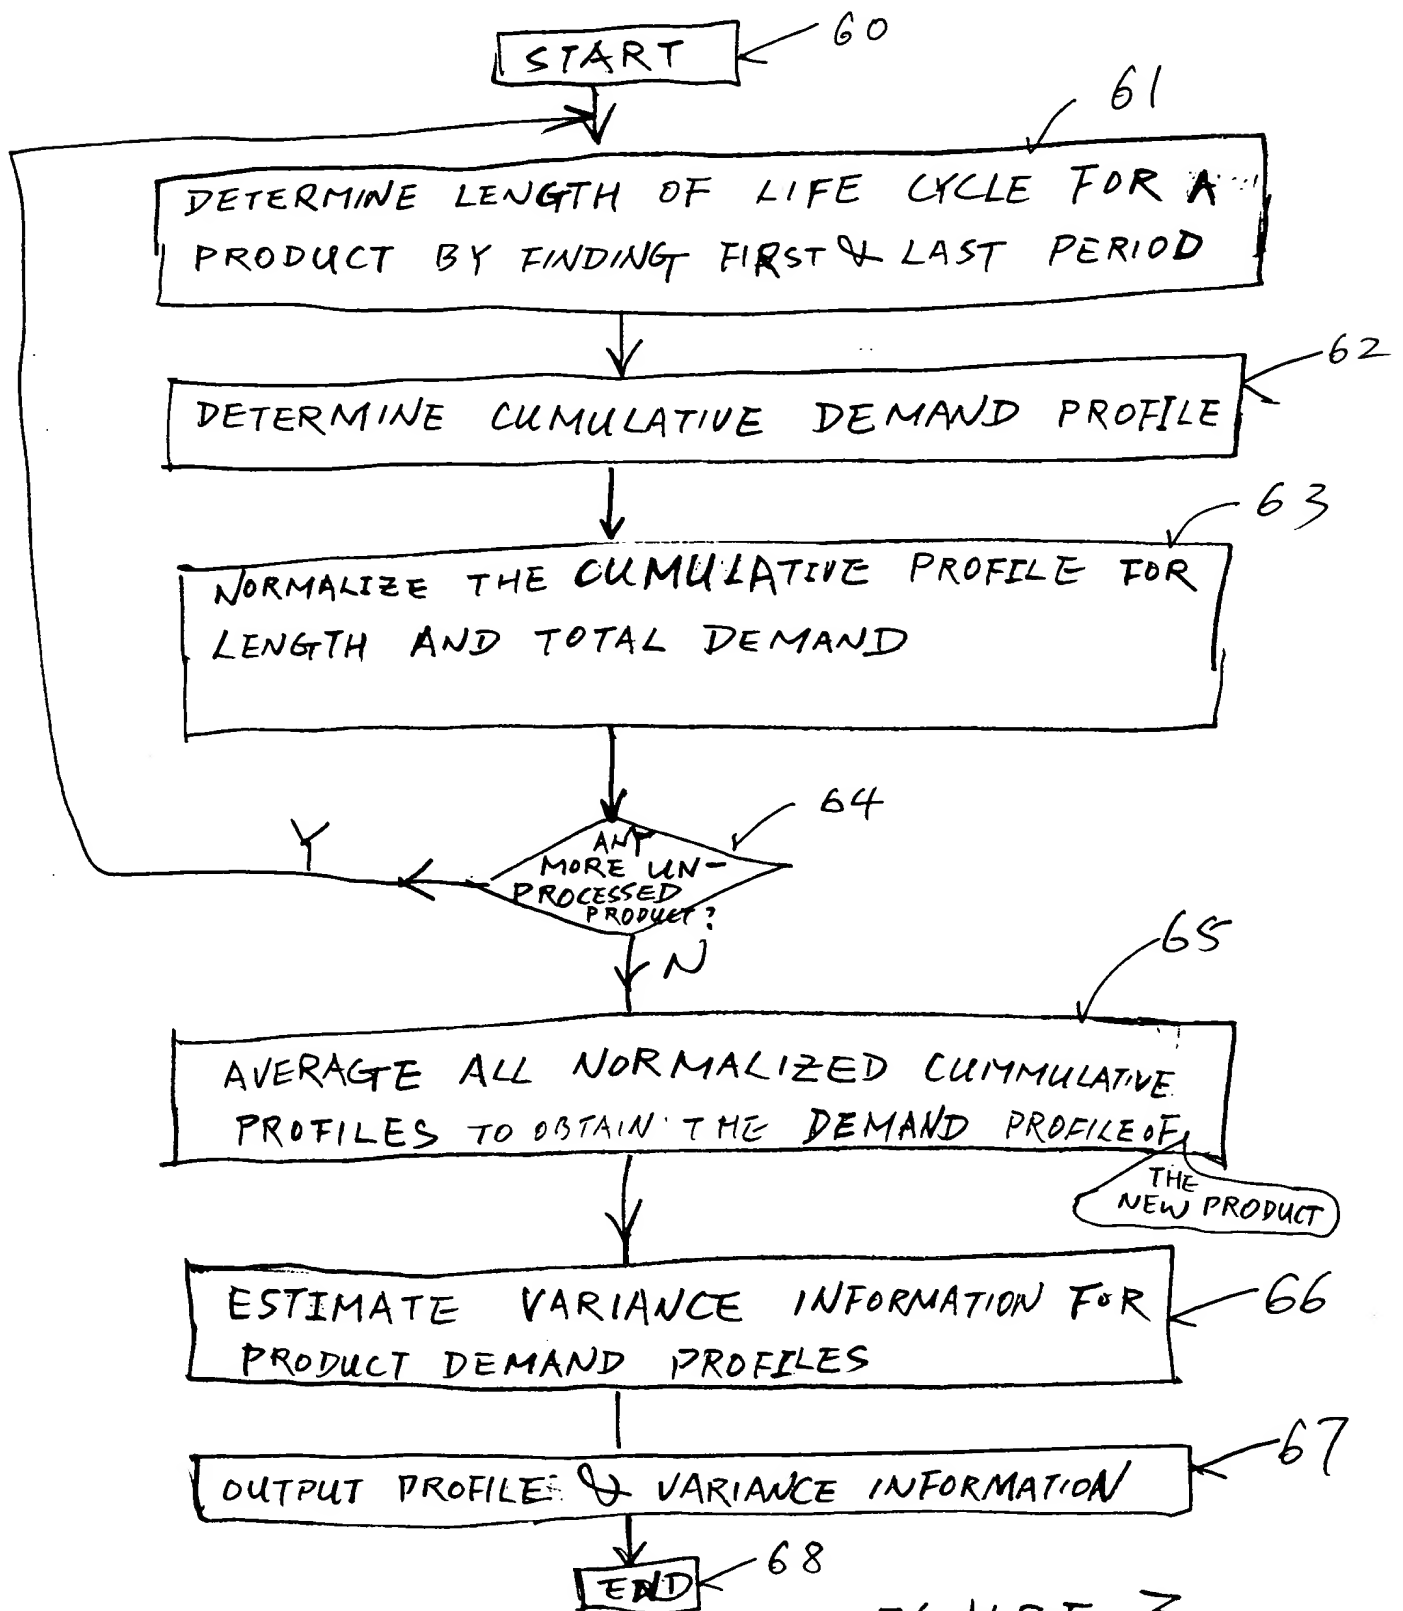 START
60
61
DETERMINE LENGTH OF LIFE CYCLE FOR A
PRODUCT BY FINDING FIRST & LAST PERIOD
62
DETERMINE CUMULATIVE DEMAND PROFILE
63
NORMALIZE THE CUMULATIVE PROFILE FOR
LENGTH AND TOTAL DEMAND
64
ANY
MORE UN-
PROCESSED
PRODUCT?
Y
N
65
AVERAGE ALL NORMALIZED CUMMULATIVE
PROFILES TO OBTAIN THE DEMAND PROFILE OF
THE
NEW PRODUCT
66
ESTIMATE VARIANCE INFORMATION FOR
PRODUCT DEMAND PROFILES
67
OUTPUT PROFILE & VARIANCE INFORMATION
68
END